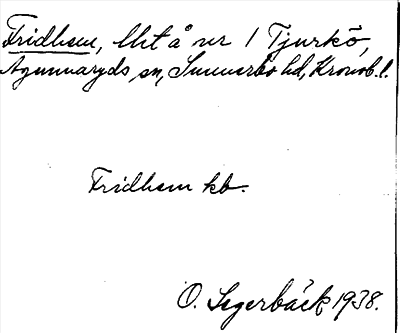 Fridhem, lht å nr 1 Tjurkö,
Agunnaryds sn, Sunnerbo hd, Kronob. l.
Fridhem kb.
O. Segerbäck 1938.